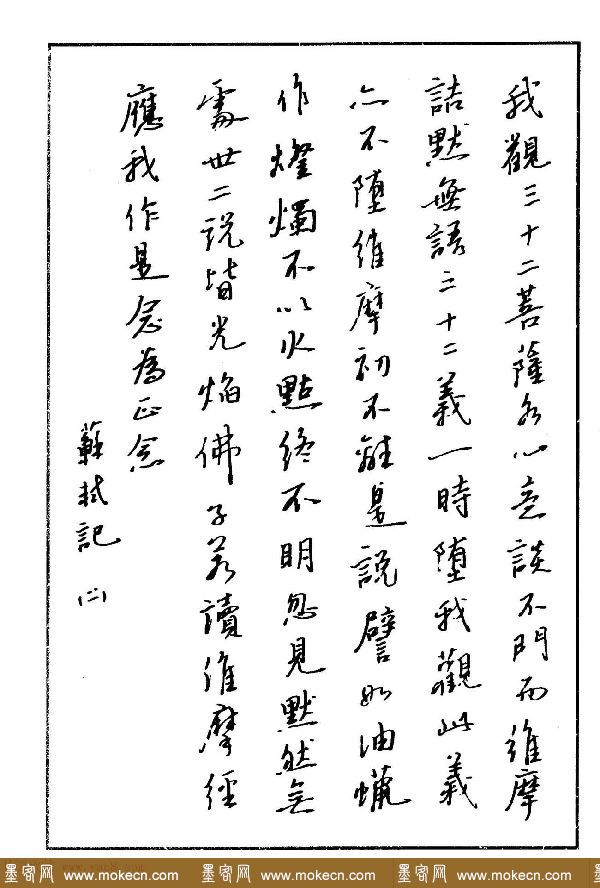 我觀三十二菩薩各以意談不門而維摩
詰默無語三十二義一時墮我觀此義
亦不墮維摩初不離是說譬如油蠟
作燈燭不以火點終不明忽見默然無
處卅二說皆光焰佛子若讀維摩經
應我作是念為正念
蘇軾記 (二)
墨客网 www.mokecn.com 墨客网 www.mokecn.com 墨客网 www.mokecn.com